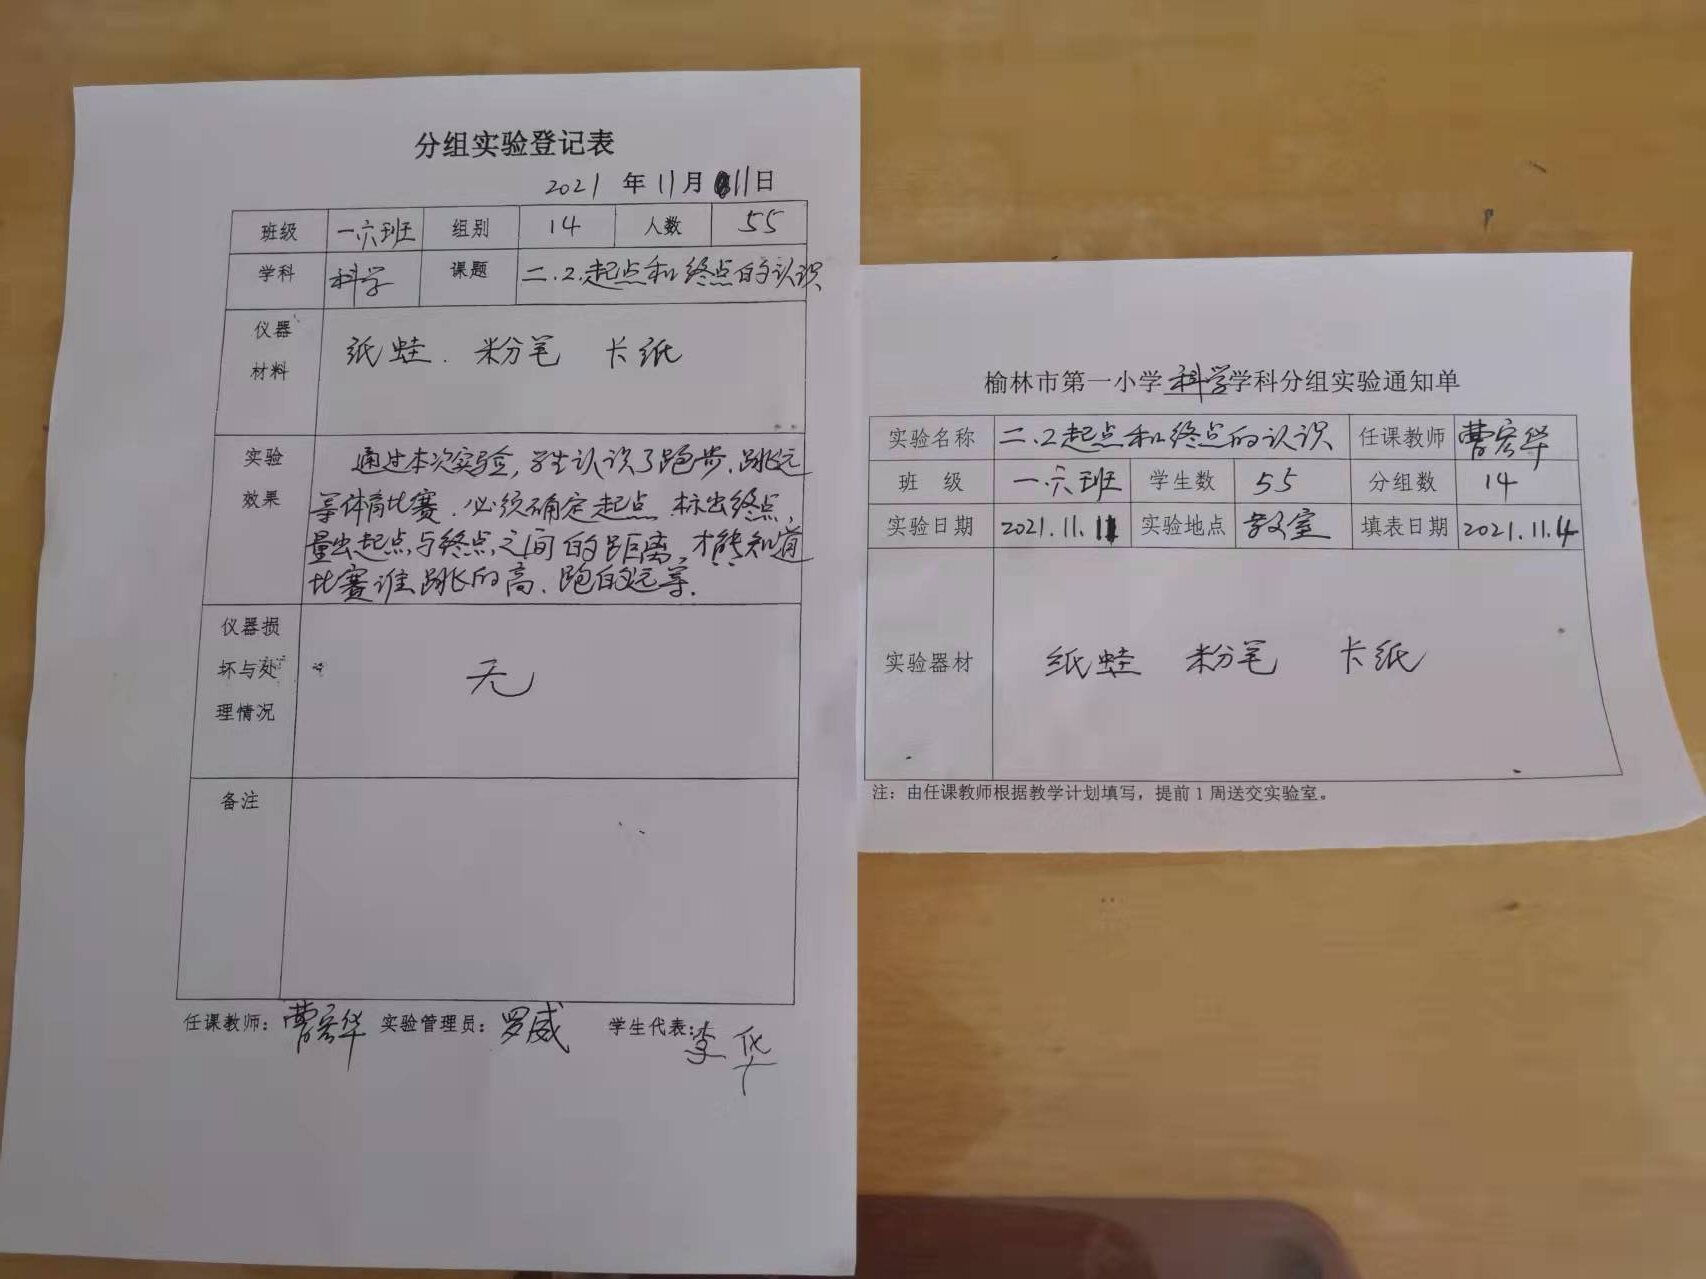 分组实验登记表
2021 年 11月 11日
班级 一六班 组别 14 人数 55
学科 科学 课题 二.2.起点和终点的认识
仪器
材料
纸蛙. 粉笔 卡纸
实验
效果
通过本次实验,学生认识了跑步.跳远
等体育比赛.必须确定起点 标出终点,
量出起点与终点之间的距离,才能知道
比赛谁跳的高、跑的远等.
仪器损
坏与处
理情况
无
备注
任课教师: 曹宏华 实验管理员: 罗威 学生代表: 李华
榆林市第一小学科学学科分组实验通知单
实验名称 二.2起点和终点的认识 任课教师 曹宏华
班 级 一.六班 学生数 55 分组数 14
实验日期 2021.11.11 实验地点 教室 填表日期 2021.11.4
实验器材 纸蛙 粉笔 卡纸
注:由任课教师根据教学计划填写,提前1周送交实验室。